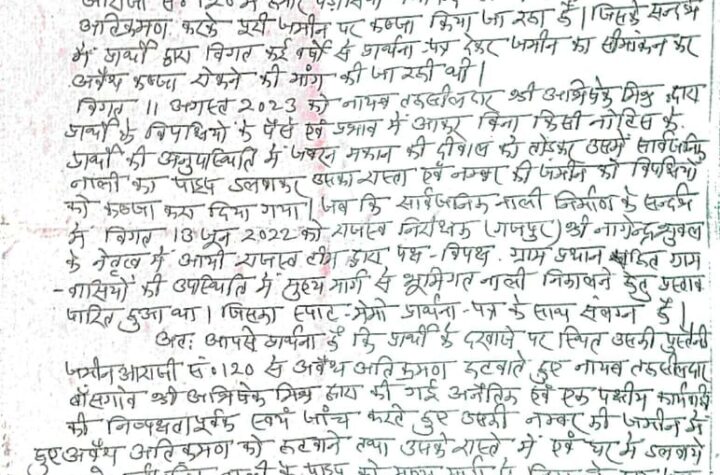 आराजी सं० 120 में हमारे पड़ोसियों
अतिक्रमण करके पूरी जमीन पर कब्जा किया जा रहा है। जिसके सन्दर्भ
में प्रार्थी द्वारा विगत कई वर्षों से प्रार्थना-पत्र देकर जमीन का सीमांकन कर
अवैध कब्जा रोकने की मांग की जा रही थी।
विगत 11 अगस्त 2023 को नायब तहसीलदार श्री अभिषेक मिश्र द्वारा
प्रार्थी के विपक्षियों के पैसे एवं प्रभाव में आकर बिना किसी नोटिस के
प्रार्थी की अनुपस्थिति में जबरन मकान की दीवाल को तोड़कर उसमें सार्वजनिक
नाली का पाइप डलवाकर उसका रास्ता एवं नम्बर की जमीन को विपक्षियों
को कब्जा करा दिया गया। जब कि सार्वजनिक नाली निर्माण के सन्दर्भ
में विगत 13 जून 2022 को राजस्व निरीक्षक (गजपुर) श्री नागेन्द्र शुक्ल
के नेतृत्व में आयी राजस्व टीम द्वारा पक्ष-विपक्ष, ग्राम प्रधान सहित ग्राम
-वासियों की उपस्थिति में मुख्य मार्ग से भूमिगत नाली निकालने हेतु प्रस्ताव
पारित हुआ था। जिसका स्पाट-मेमो प्रार्थना-पत्र के साथ संलग्न है।
अतः आपसे प्रार्थना है कि प्रार्थी के दरवाजे पर स्थित उसकी पुश्तैनी
जमीन आराजी सं० 120 से अवैध अतिक्रमण हटवाते हुए नायब तहसीलदार
बांसगांव श्री अभिषेक मिश्र द्वारा की गई अनैतिक एवं एक पक्षीय कार्यवाही
की निष्पक्षता पूर्वक स्वयं जाँच करते हुए उसकी नम्बर की जमीन में
हुए अवैध अतिक्रमण को हटवाने तथा उसके रास्ते में एवं घर में डलवाये
नाली के पाइप को मुख्य मार्ग